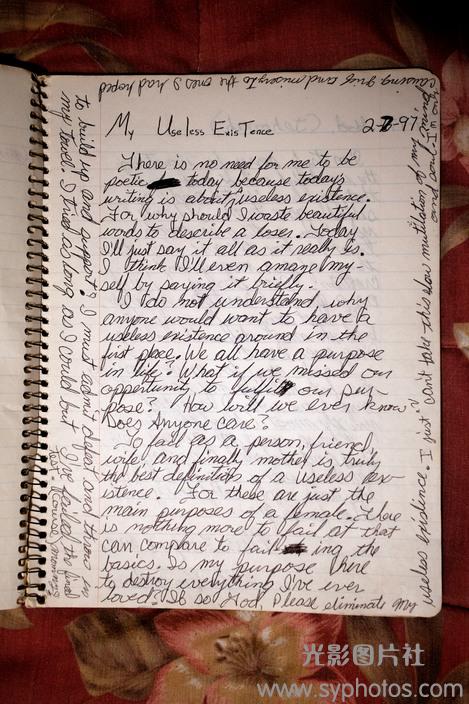 My Useless Existence 2-7-97
There is no need for me to be
poetic today because todays
writing is about useless existence.
For why should I waste beautiful
words to describe a loser. Today
I'll just say it all as it really is.
I think I'll even amaze my-
self by saying it briefly.
I do not understand why
anyone would want to have a
useless existence around in the
first place. We all have a purpose
in life. What if we missed our
opportunity to fulfill our pur-
pose? How will we ever know?
Does Anyone care?
To fail as a person, friend,
wife, and finally mother is truly
the best definition of a useless ex-
istence. For these are just the
main purposes of a female. There
is nothing more to fail at that
can compare to failing the
basics. Is my purpose here
to destroy everything I've ever
loved? If so God, Please eliminate my
useless existence. I just can't take this slow mutilation of my mind
and soul. I'm only
causing grief and misery to the ones I had hoped
to build up and support. I must admit defeat and throw in
my towel. I tried as long as I could but I've failed the final
test
光影图片社
www.syphotos.com